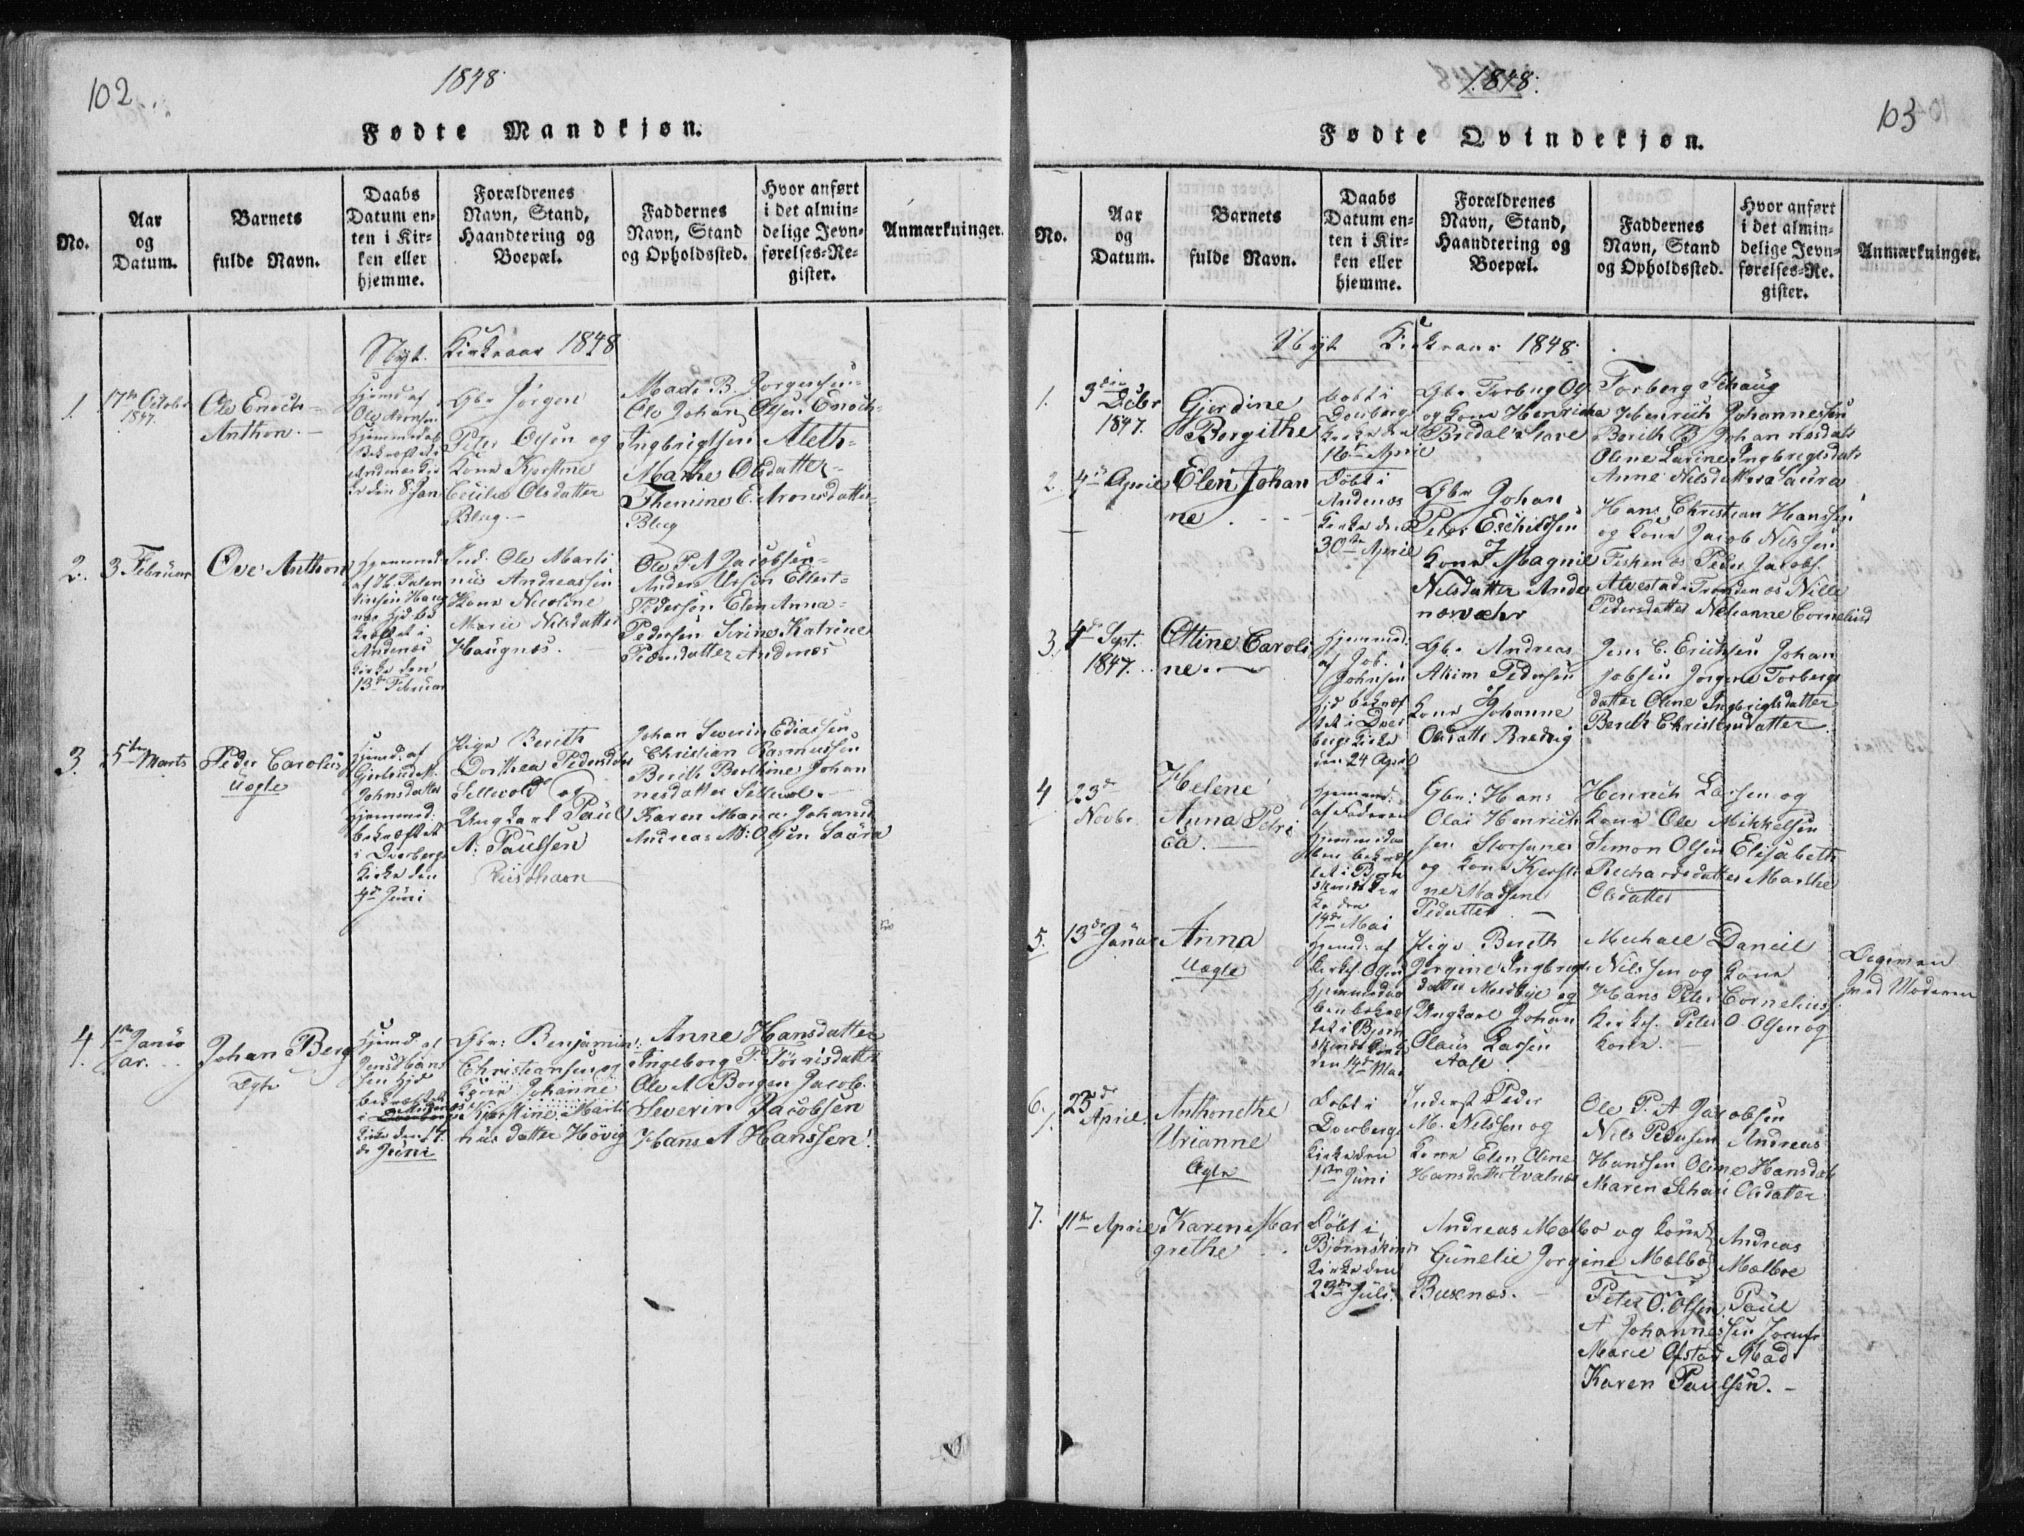 102
1848
Fødte Mandkjøn.
No.
Aar
og
Datum.
Barnets
fulde Navn.
Daabs
Datum en-
ten i Kir-
ken eller
hjemme.
Forældrenes
Navn, Stand,
Haandtering og
Boepæl.
Faddernes
Navn, Stand
og Opholdssted.
Hvor anført
i det almin-
delige Jevn-
førelses-Re-
gister.
Anmærkninger.
Nyt Kirkeaar 1848
1.
17de October
1847.
Ole Enoch
Anthon.
Hjemd af
Ole Arensen
Hjemmedaab
bekræftet i
Andenæs Kir
ke den 8 Jan
Gbr Jørgen
Peter Olsen og
Kone Kirstine
Cecilie Olsdatter
Bleg.
Mads B. Jørgensen
Ole Johan Olsen Enoch
Ingbrigtsen Aleth
Marthe Olsdatter
Themine E. Aronsdatter
Bleg
2.
3 Februar
Ove Anthon
hjemmed
af H. Palen
tinsen Haug
næs Hjd be
kræftet i
Andenæs
Kirke den
13de Februar
Ind. Ole Marti
nüs Andreassen
Kone Nicoline
Marie Nilsdatter
Haugnæs.
Ole P A Jacobsen
Anders Ursin Ellert
Pedersen Elen Anna
Pedersen Serine Katrine
Pedersdatter Andenæs
3.
5te Marts
Peder Carolius
Uægte
Hjemd. af
Gjertrud
Johnsdatter
Hjemmed:
bekræftet
i Dverberg
Kirke den
4de Juni
Pige Berith
Dorthea Pedersdat
Sellevold og
Ungkarl Paul
A. Paulsen
Riisehavn
Johan Severin Ediassen
Christian Rasmussen
Berith Berthine Johan
nesdatter Sellevol.
Karen Maria Johansd
Andreas M: Olsen Saura
4.
1ste Janu
ar.
Johan Berg
Egte
Hjemd. af
Jens Hans
sen Hjd
bekræftet
i Andenæs
Kirke den 17
de Juni
Gbr: Benjamin
Christiansen og
Kone Johanne
Kjerstine Marti
nus datter Høvig
Anne Hansdatter
Ingeborg P. Jørrisdatter
Ole A Borgen Jacob
Severin Jacobsen
Hans A Hanssen
103
1848.
Fødte Qvindekjøn.
No.
Aar
og
Datum.
Barnets
fulde Navn.
Daabs
Datum en-
ten i Kir-
ken eller
hjemme.
Forældrenes
Navn, Stand,
Haandtering og
Boepæl.
Faddernes
Navn, Stand
og Opholdssted.
Hvor anført
i det almin-
delige Jevn-
førelses-Re-
gister.
Anmærkninger.
Nyt Kirkeaar 1848
1.
3die Debr
1847.
Gjerdine
Borgithe
Døbt i
Dverberg
Kirke den
16de April
Gbr Torberg Ol
og Kone Henricha
Bredal Stave
Torberg Schaug
Henrich Johannessen
Berith B Johannesdatt
Oline Larine Ingbrigtsdatt
Anne Nilsdatter Saura
2.
4de April
Elen Johan
ne
Døbt i
Andenæs
Kirke den
30te April
Gbr Johan
Peter Eschildsen
Kone J Magnil
Nilsdatter Ande
næsvæhr
Hans Christian Hanssen
og Kone Jacob Nilssen
Fiskenæs Peder Jacobs.
Alvestad Trondenæs Nille
Pedersdatter Nelianne Corneliusd
3.
4de Sept.
1847.
Ottine Caroli
ne.
hjemmed:
af Joh.
Johnsen
Hjd bekræf
tet i Dver
bergs Kirke
den 24 April
Gbr Andreas
Akim Pedersen
Kone Johanne
Olsdatt. Bredvig
Jens C. Erichsen Johan
Jobsen Jørgine Torbergs
datter Oline Ingbrigtsdatter
Berith Christensdatter
4
23de
Novbr
Helene
Anna Petri
ca.
hjemmed:
af Faderen
Hjemmedaa
ben bekræf
tet i Bjørn
skinds Kir
ke den
14de Mai
Gbr: Hans
Olai Henrich
sen Storjunes
og Kone Kjersti
ne Madsine
Pedatter
Henrich Larsen og
Kone Ole Mikkelsen
Simon Olsen Elisabeth
Richardsdatter Marthe
Olsdatter
5.
13de Januar
Anna
Uægte
hjemd: af
Kirkes. Olsen
Hjemmedaa
ben bekræf
tet i Bjørn
skinds Kirke
den 14de Mai
Pige Berith
Jørgine Ingbrigt
datter Medbye og
Ungkarl Johan
Olaus Larsen
Aase
Michael Daneil
Nilssen og Kone
Hans Peter Cornelius
Kirkes. Peter O. Olsen og
Kone.
Legeman
med Moderen
6.
23de
April.
Anthonethe
Urianne
Ægte
Døbt i
Dverberg
Kirke den
1ste Juni
Inderst Peder
M. Nilssen og
Kone Elen Oline
Hansdatter Kvalnæs
Ole P. A Jacobsen
Nils Pedersen Andreas
Hanssen Oline Hansdatt
Maren Schau Olsdatter
7.
11te April
Karen Mar
grethe
Døbt i
Bjørnskinds
Kirke den
23de Juli
Andreas Mælbo og Kone
Gunelie Jorgine Mælbo
Buksnæs.
Andreas
Mælboe
Peter O. Olsen Paul
A Johannessen Josefs
Marie Ofstad Mad
Karen Paulsen.